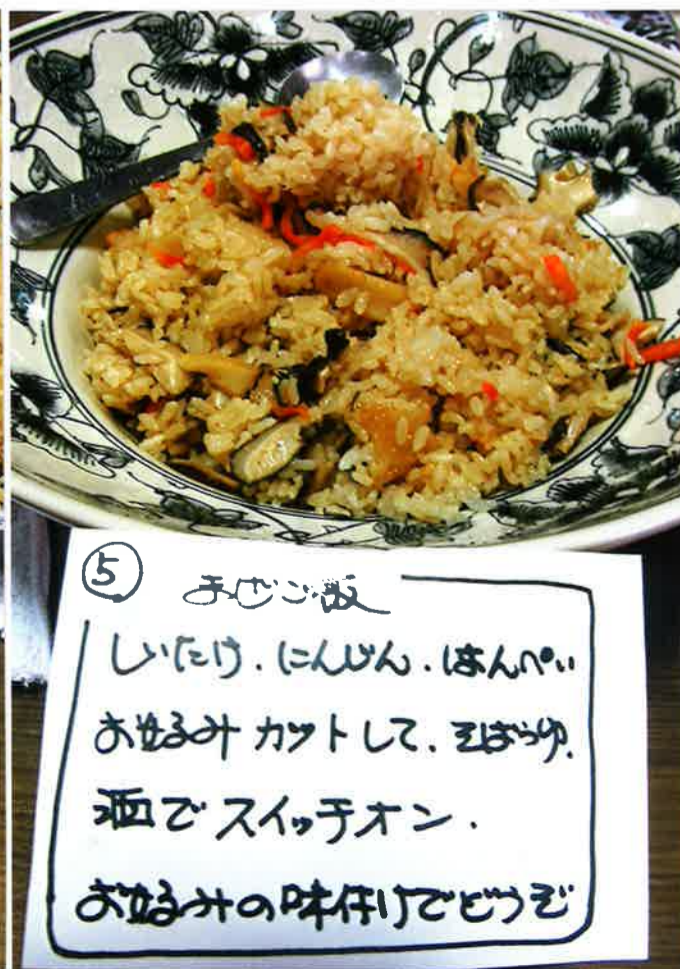 ⑤ まぜご飯
しいたけ.にんじん.はんぺい
お好みカットして.そばつゆ.
酒でスイッチオン.
お好みの味付けでどうぞ